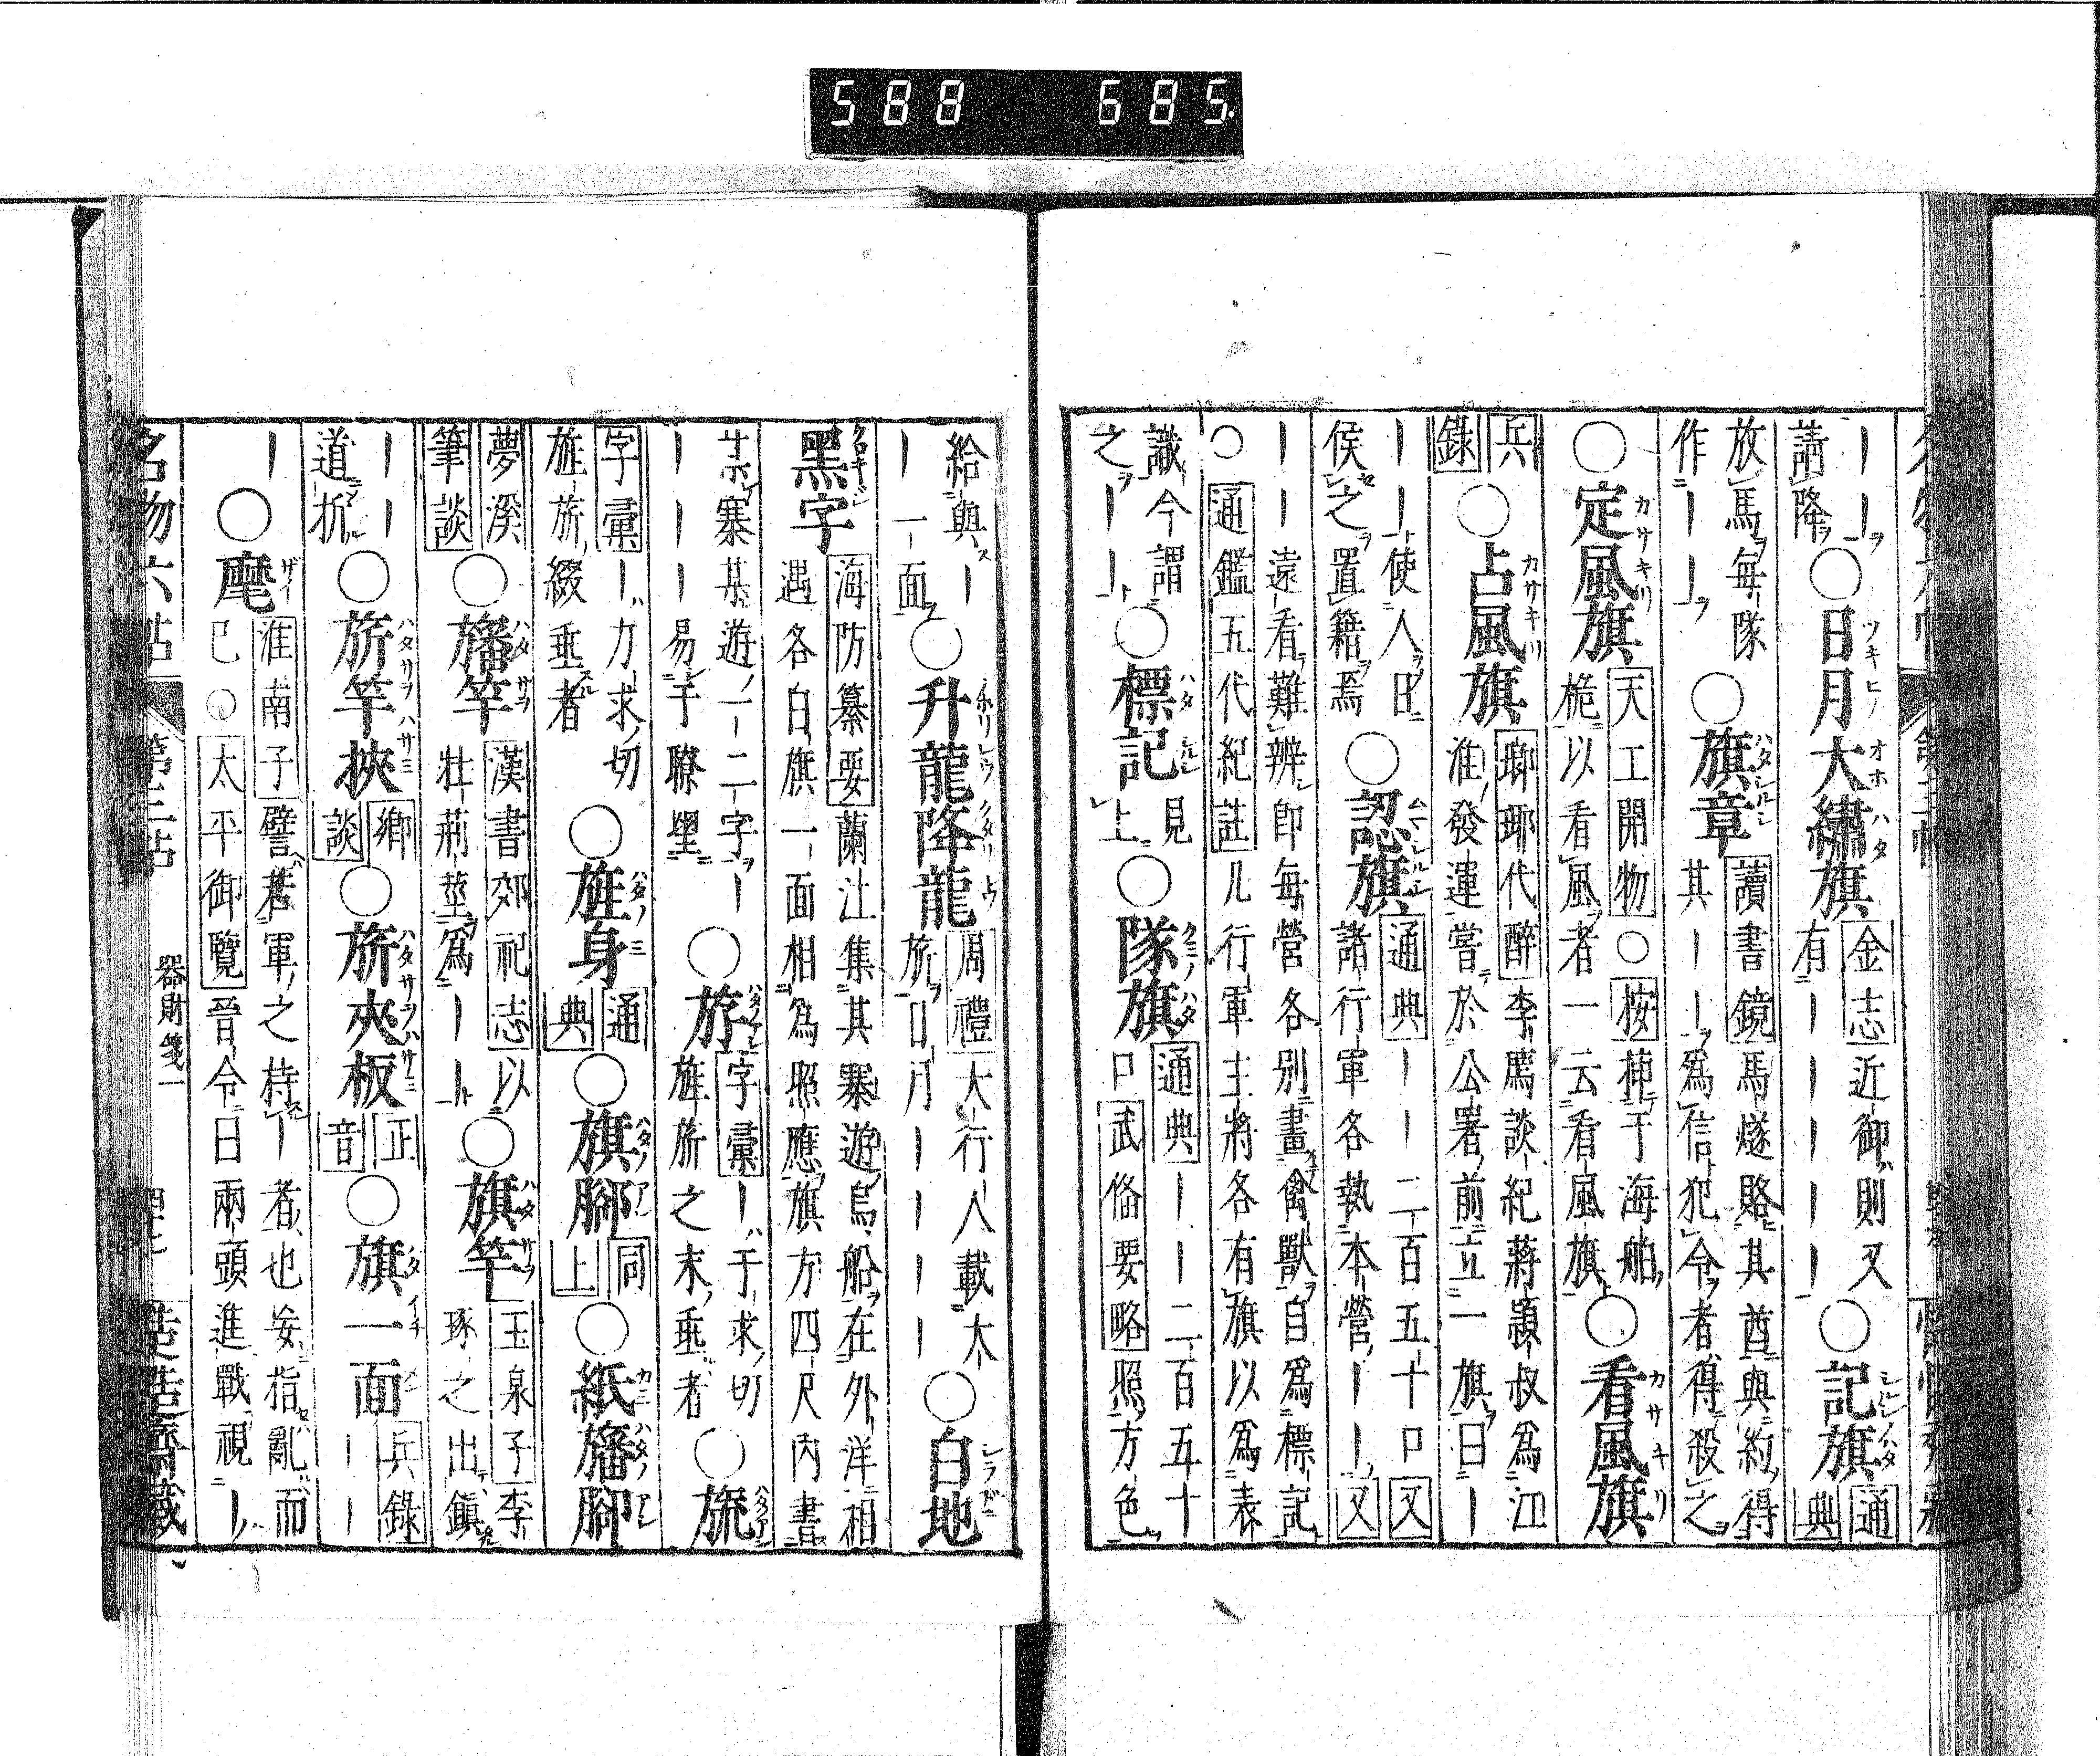 588 685
｜｜ヲ
請降ヲ○日月大繡旗
金志近御則又
有｜｜｜｜｜○記旗
通典
放馬ヲ毎隊
作｜｜｜ヲ○旗章
讀書鏡馬燧賂其酋與約得
其｜｜ヲ爲信犯令者得殺之
○定風旗
天工開物○按挿于海舶
桅以看風者一云看風旗○看風旗
兵錄○占風旗
瑯琊代醉李廌談紀蔣潁叔爲江
淮發運嘗於公署前立一旗曰｜
｜｜使人日
候之置籍焉○認旗
通典｜｜二百五十口又
諸行軍各執本營｜｜又
｜｜遠看難辨即毎營各別畫禽獸自爲標記
○通鑑五代紀註凡行軍主將各有旗以爲表
識今謂
之｜｜○標記
見上○隊旗
通典｜｜二百五十
口武俻要略照方色
給與｜
｜一面○升龍降龍
周禮大行人載大
旂日月｜｜｜｜○白地
黑字
海防纂要蘭江集其寨遊烏船在外洋相
遇各白旗一面相爲照應旗方四尺內書
某寨某遊一二字｜
｜｜｜易于瞭望○斿
字彙｜于求切
旌旂之末垂者○旒
字彙｜力求切
旌旂綴垂者○旌身
通典○旗脚
同上○紙旛脚
夢溪筆談○旛竿
漢書郊祀志以
牡荊莖爲｜｜○旗竿
玉泉子李
琢之出鎭
｜｜
道折○旂竿挾
鄉談○旂夾板
正音○旗一面
兵錄
｜｜
｜○麾
淮南子譬若軍之持｜者也妄指亂而
已○太平御覽晉令曰兩頭進戰視｜
名物六帖 第三帖 器財箋一